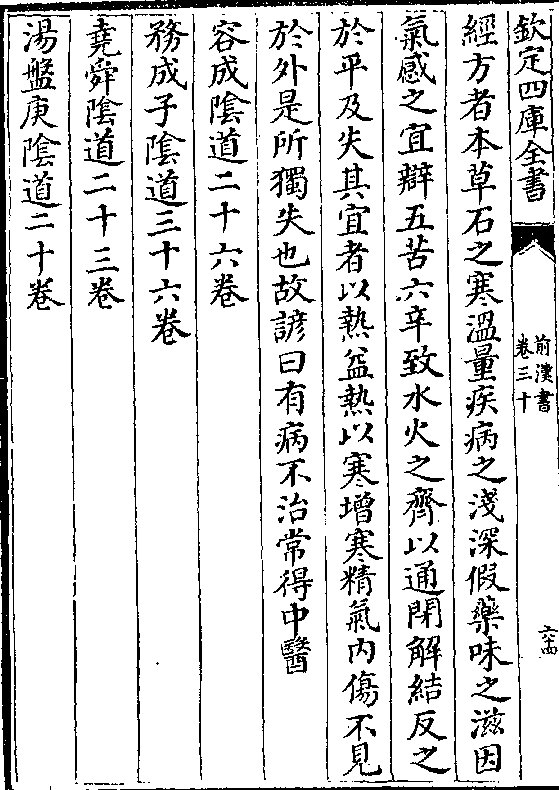 欽定四庫全書
前漢書
卷三十
六十四
經方者本草石之寒溫量疾病之淺深假藥味之滋因
氣感之宜辯五苦六辛致水火之齊以通閉解結反之
於平及失其宜者以熱益熱以寒增寒精氣內傷不見
於外是所獨失也故諺曰有病不治常得中醫
容成陰道二十六卷
務成子陰道三十六卷
堯舜陰道二十三卷
湯盤庚陰道二十卷